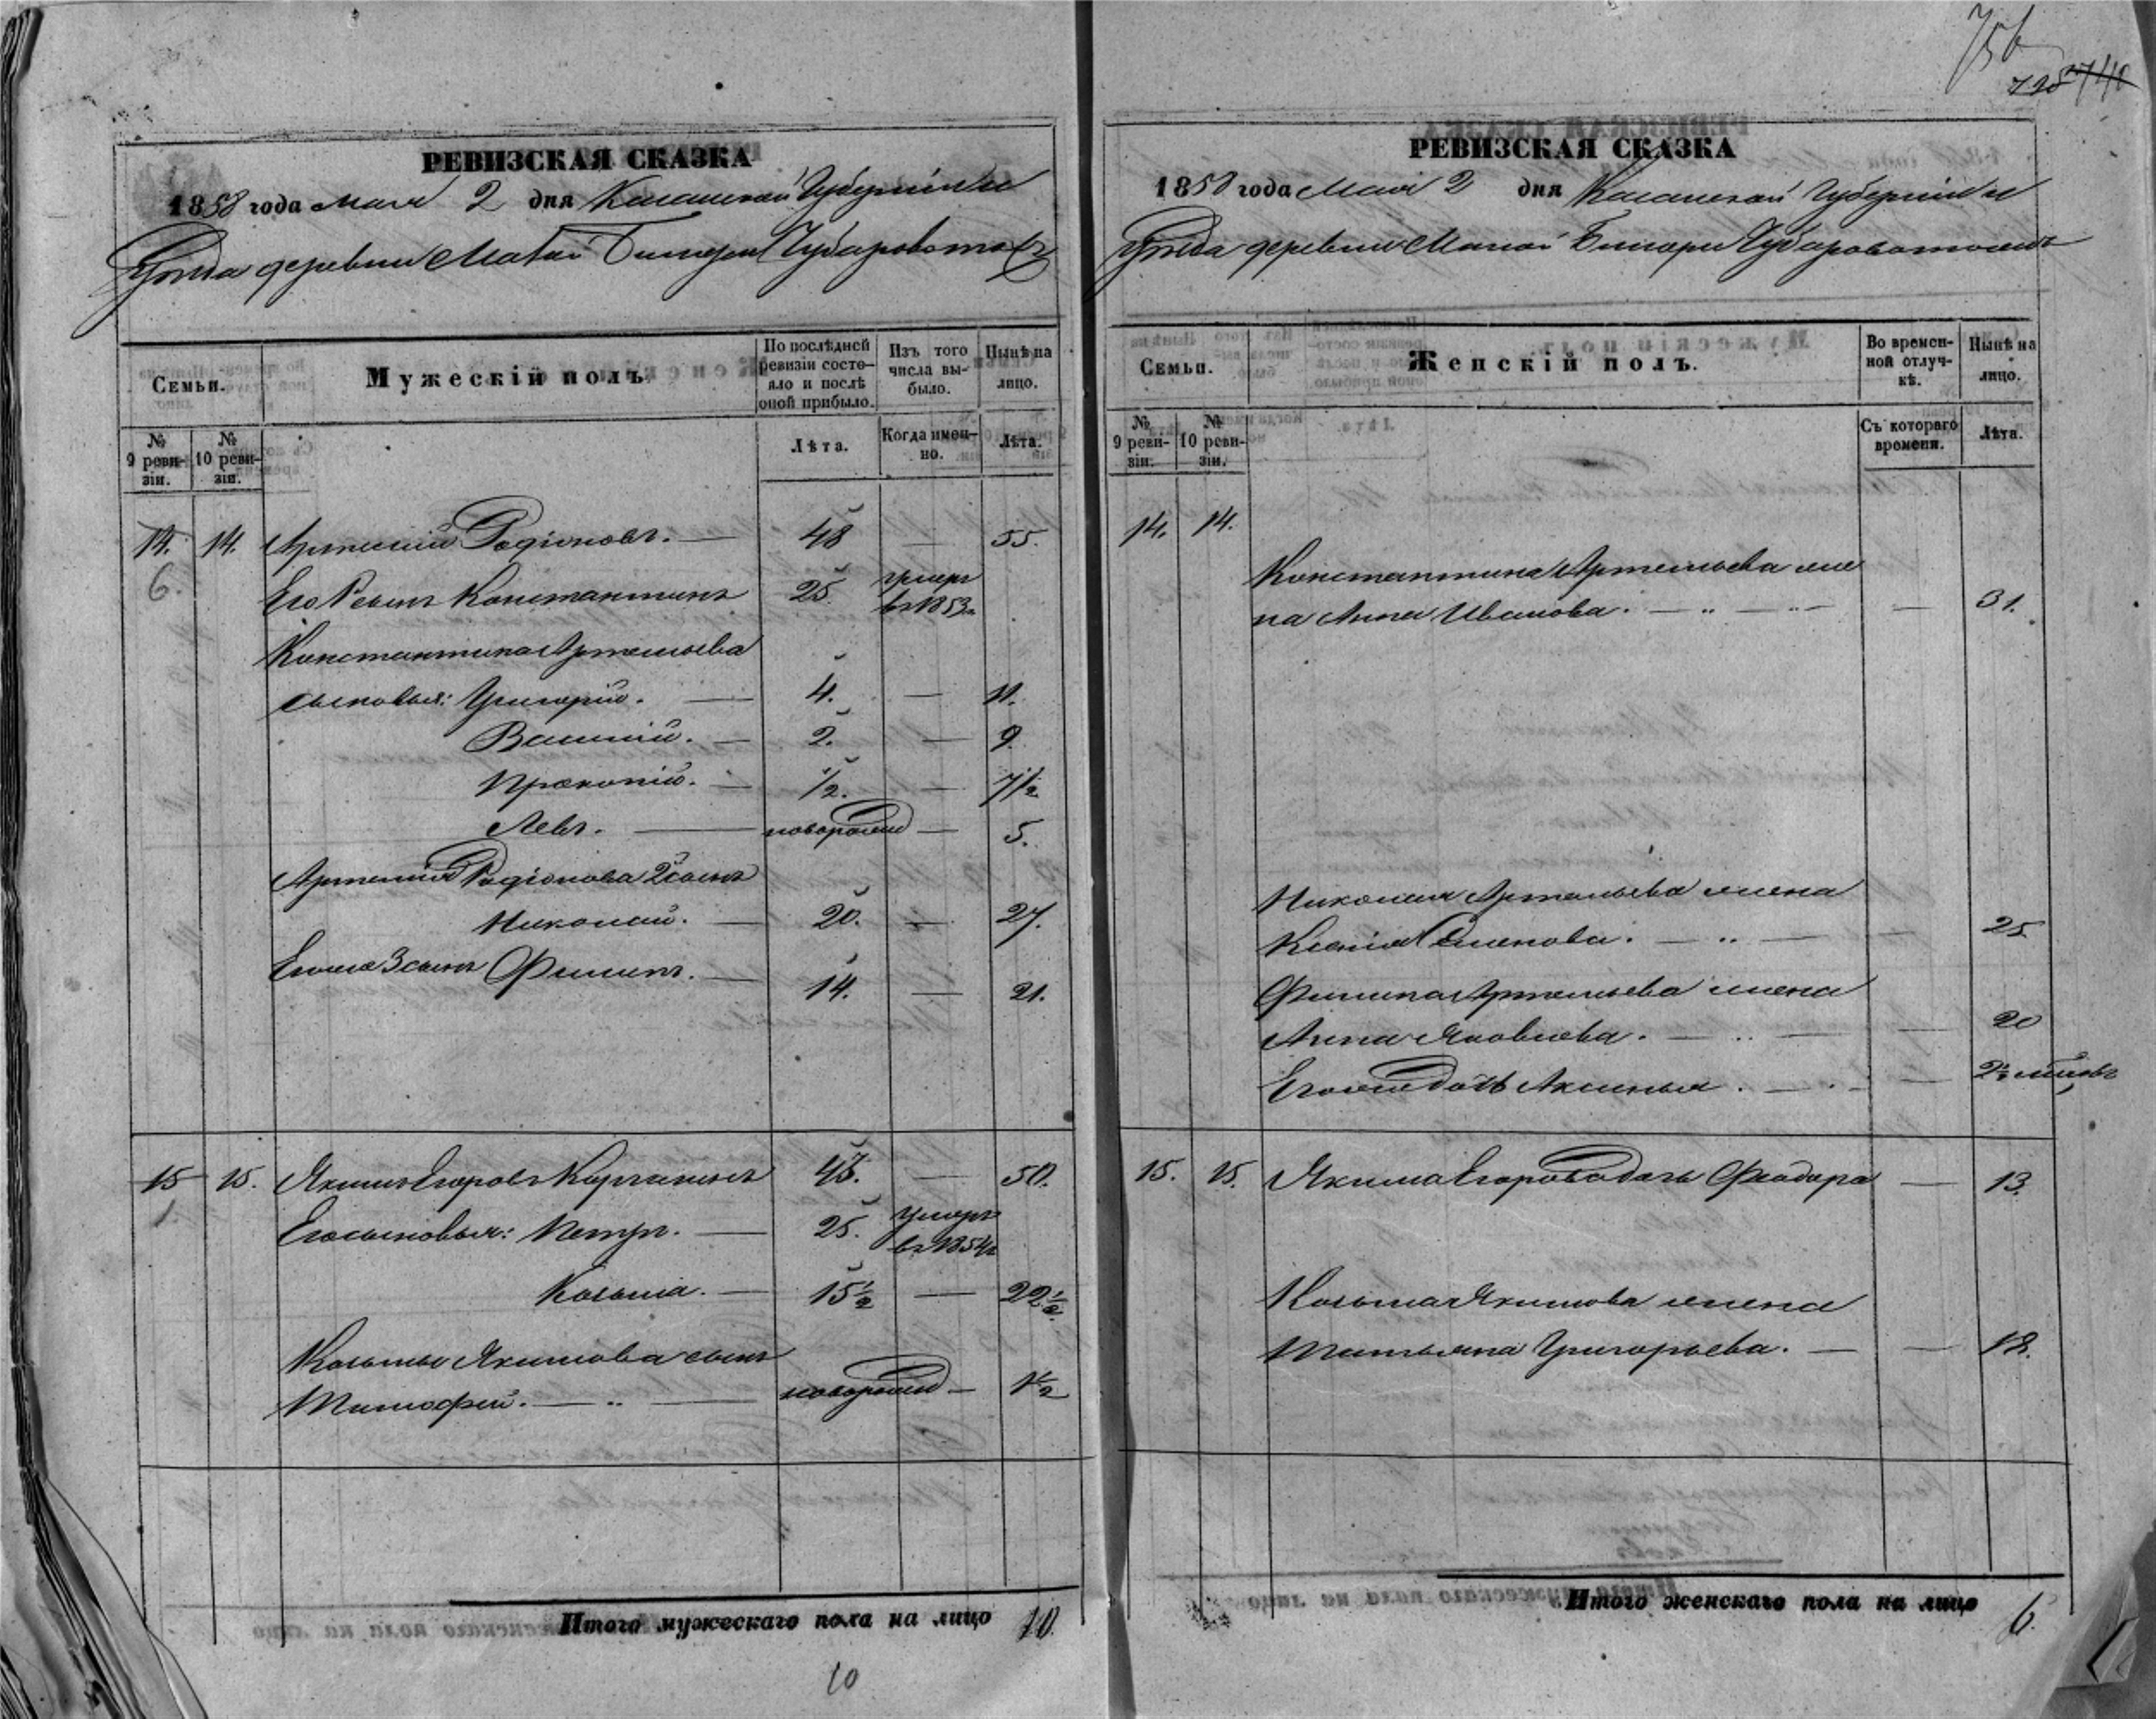 75б
725 740
РЕВИЗСКАЯ СКАЗКА
1858 года мая 2 дня Казанской Губерніи и
Уѣзда деревни Малой Бишери Чубаровотожъ
Семьи.
Мужескій полъ.
По послѣдней ревизіи состояло и послѣ оной прибыло.
Изъ того числа выбыло.
Нынѣ на лицо.
№ 9 ревизіи.
№ 10 ревизіи.
Лѣта.
Когда именно.
Лѣта.
14. 14. Артемій Родіоновъ. — 48 — 55.
6. Его 1 сынъ Константинъ 25. умеръ
въ 1853 г.
Константина Артемьева
сыновья: Григорій. — 4. — 11.
Василій. — 2. — 9.
Прокопій. — 1/2. — 7 1/2
Левъ. — новорожд — 5.
Артемія Родіонова 2 сынъ
Николай. — 20. — 27.
Егоже 3 сынъ Филипъ. — 14. — 21.
15 15. Якимъ Егоровъ Курганинъ 43. — 50.
1. Его сыновья: Петръ. — 25. умеръ
въ 1854 г.
Козьма. — 15 1/2 — 22 1/2.
Козьмы Якимова сынъ
Тимофей. — „ — новорожд — 1 1/2
Итого мужескаго пола на лицо 10.
10
РЕВИЗСКАЯ СКАЗКА
1858 года Мая 2 дня Казанской Губерніи и
Уѣзда деревни Малой Бишери Чубаровотожъ
Семьи.
Женскій полъ.
Во временной отлучкѣ.
Нынѣ на лицо.
№ 9 ревизіи.
№ 10 ревизіи.
Съ котораго времени.
Лѣта.
14. 14.
Константина Артемьева же
на Анна Иванова. — „ — „ — — 31.
Николая Артемьева жена
Ксенія Семенова. — „ — — 25
Филипа Артемьева жена
Анна Яковлева. — „ — — 20
Егоже дочь Аксинья. — „ — —
15. 15. Якима Егорова дочь Феодора — 13.
Козьмы Якимова жена
Татьяна Григорьева. — — 18.
Итого женскаго пола на лицо 6.